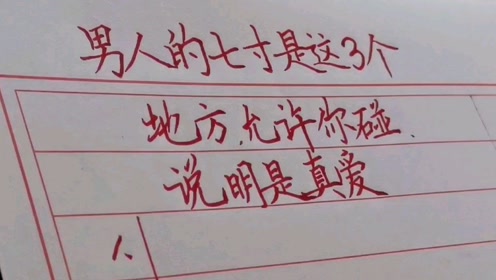 男人的七寸是这3个
地方,允许你碰,
说明是真爱
1、